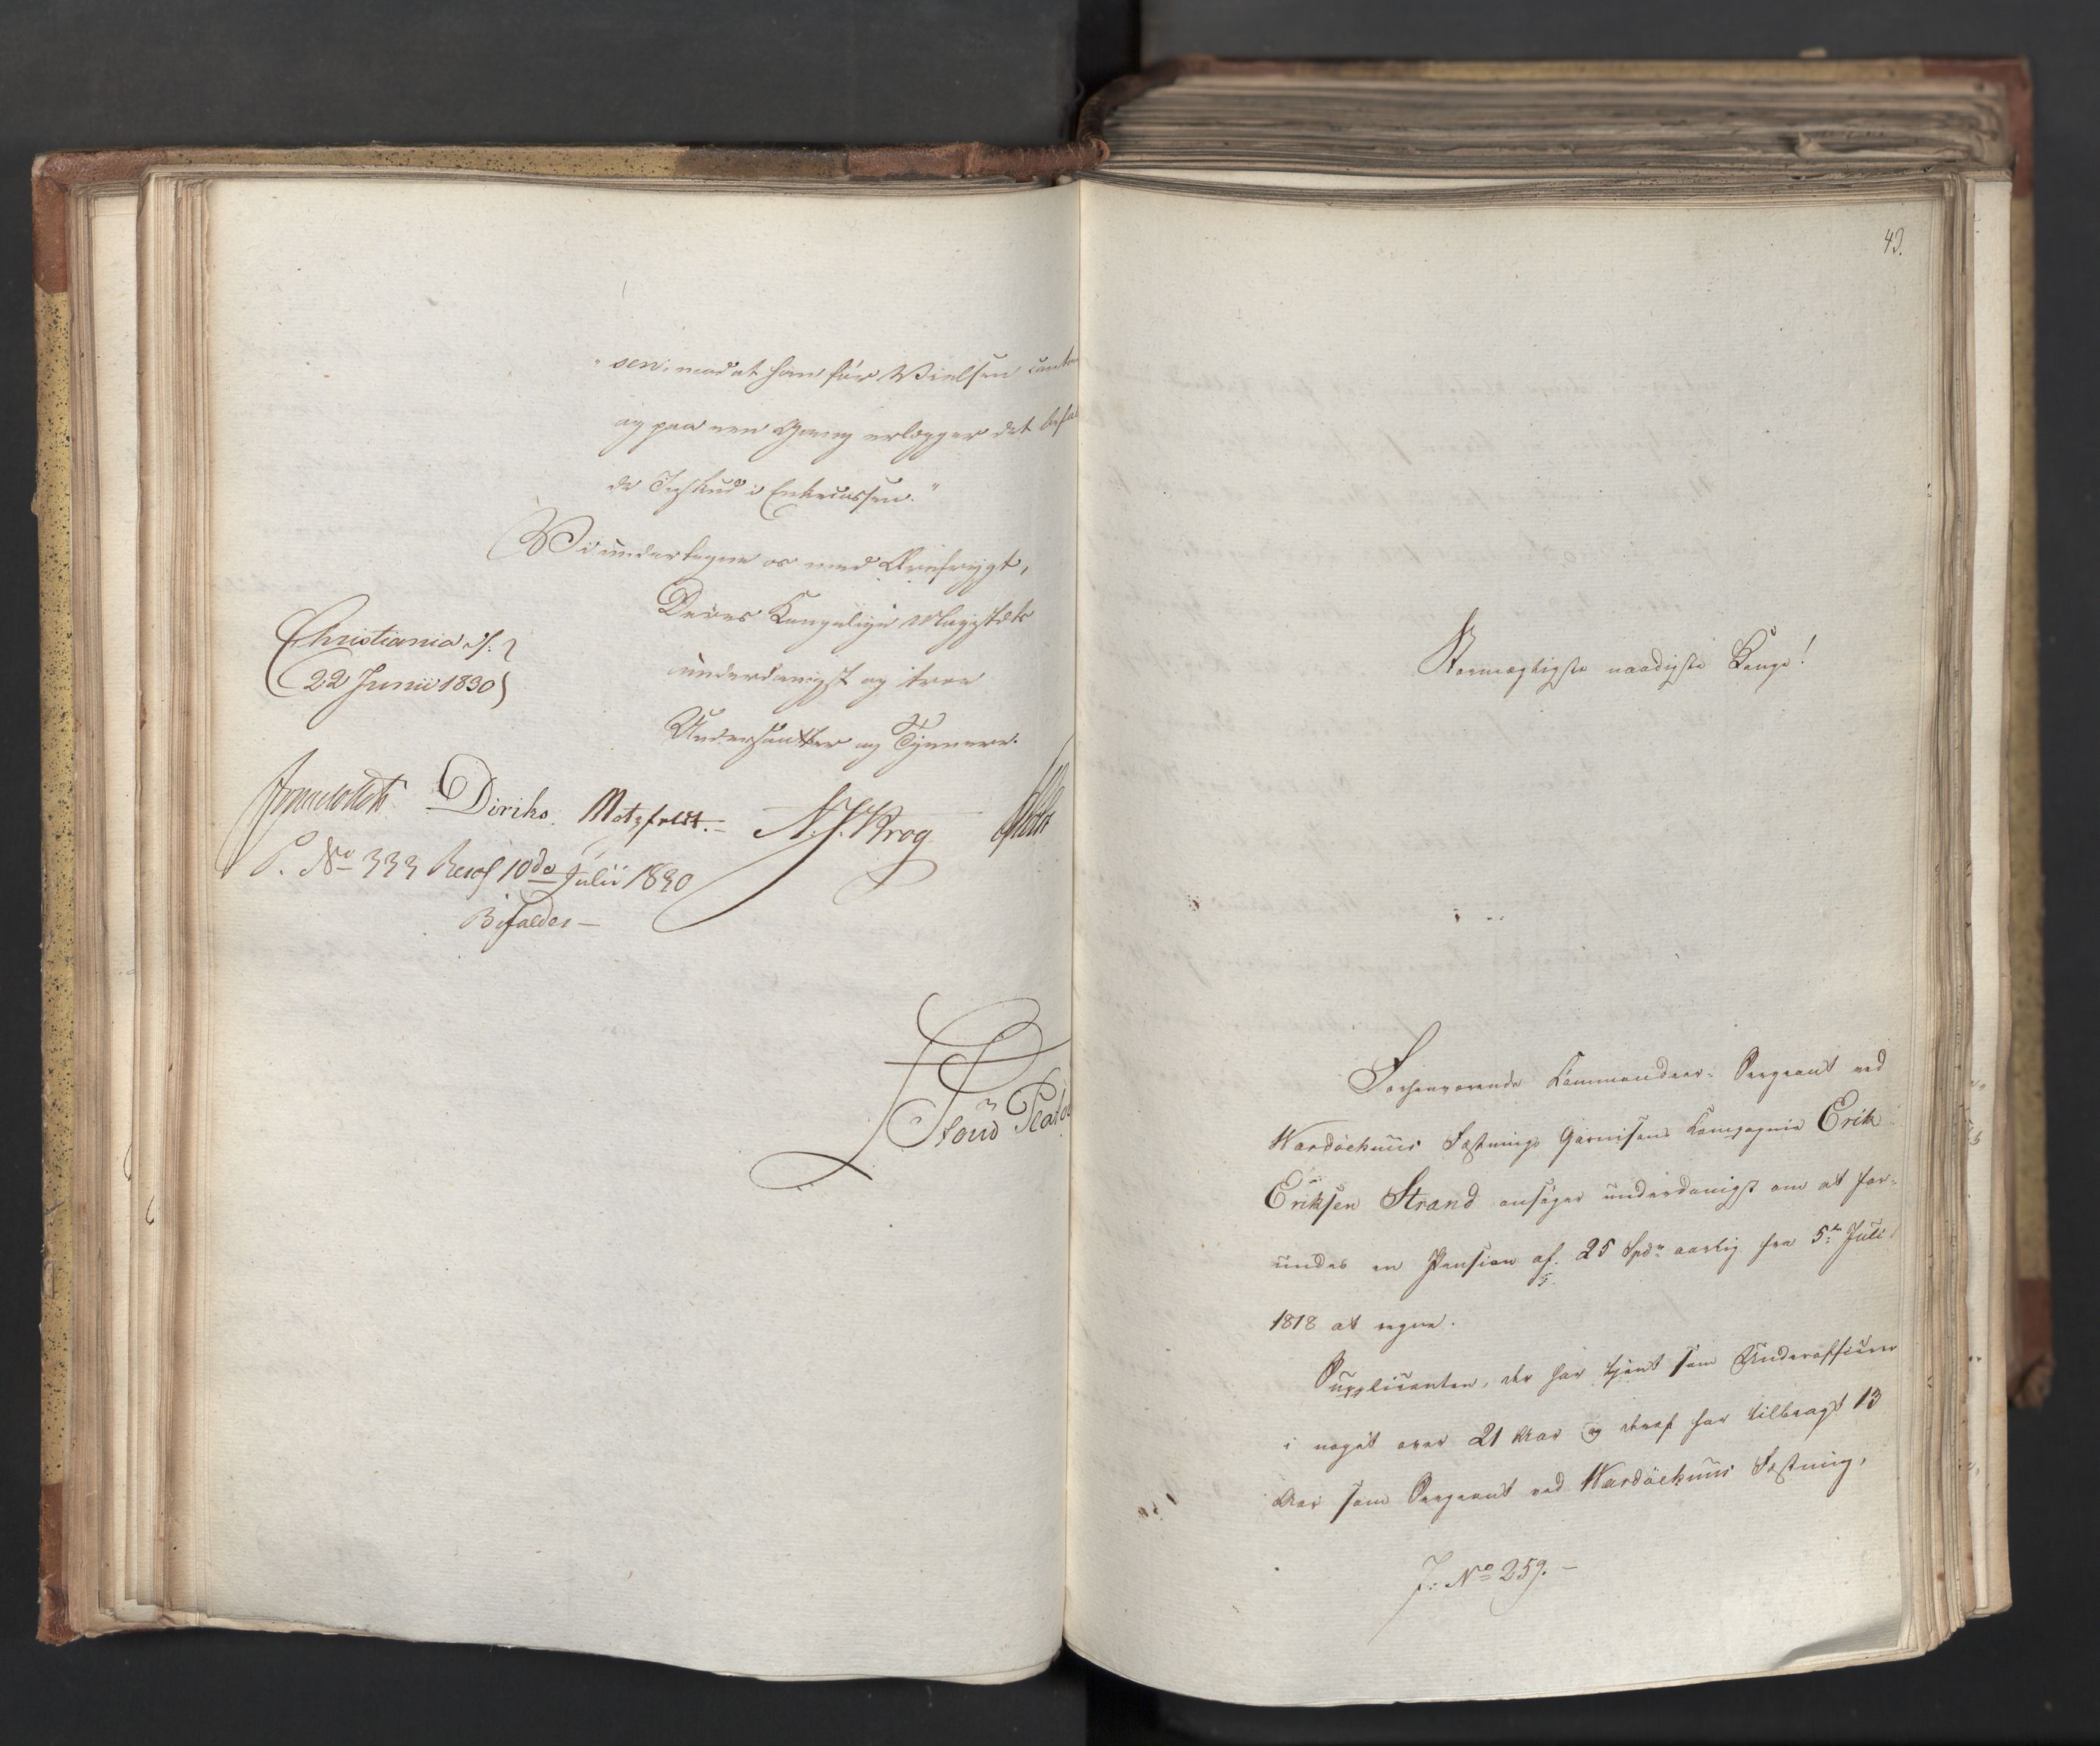 "sen, mod at han før Vielsen contant
og paa een Gang erlægger det befalede
Indskud i Enkecassen."
Vi undertegne os med Ærefrygt,
Deres Kongelige Majestæts
underdanigst og troe
Undersaatter og Tjenere.
Christiania d.
22 Junii 1830
Diriks. Motzfeldt. N. J. Krog
P. No 333 Resol 10de Julii 1830
Bifaldes —
43.
Stormægtigste naadigste Konge!
Forhenværende Commandeer-Sergeant ved
Wardöehuus Fæstnings Garnisons Compagnie Erik
Eriksen Strand ansøger underdanigst om at for-
undes en Pension af 25 Spd aarlig fra 5te Juli
1818 at regne.
Supplicanten, der har tjent som Underofficeer
i noget over 21 Aar og deraf har tilbragt 13
Aar som Sergeant ved Wardöehuus Fæstning,
J: No 259. —